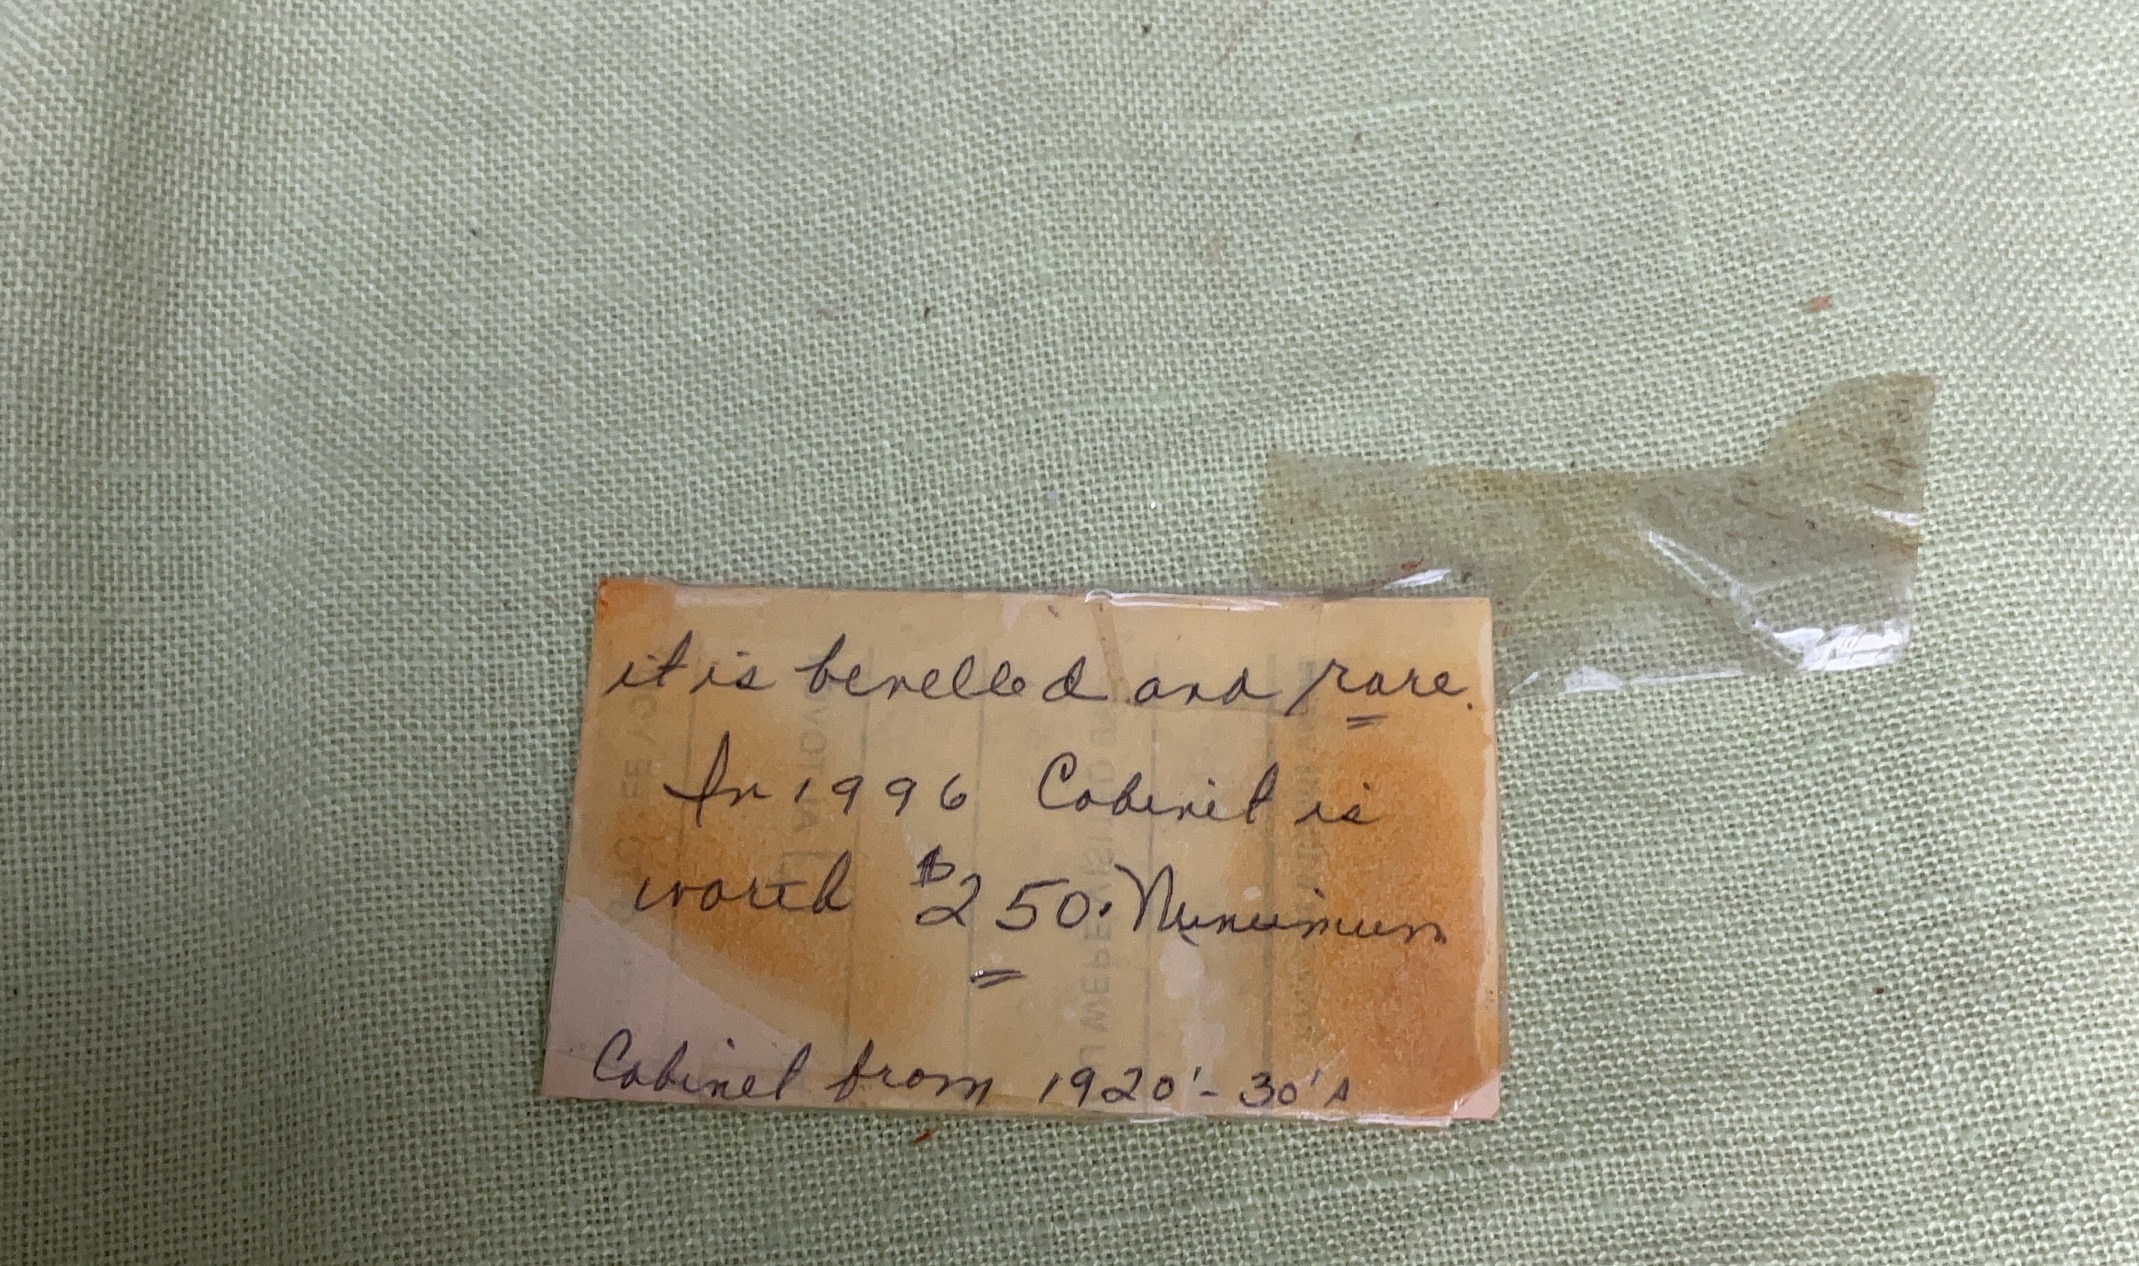 it is bevelled and rare.
In 1996 Cabinet is
worth $250. Minimum
Cabinet from 1920'-30's